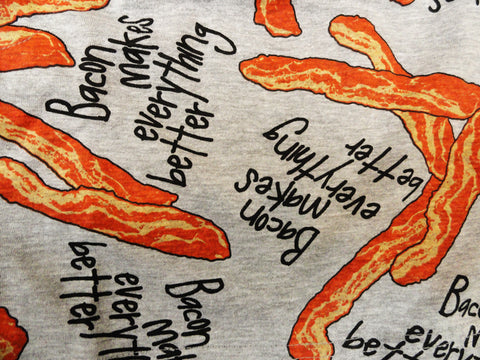 Bacon
makes
everything
better!
Bacon
makes
everything
better
Bacon
ma
everyth
better